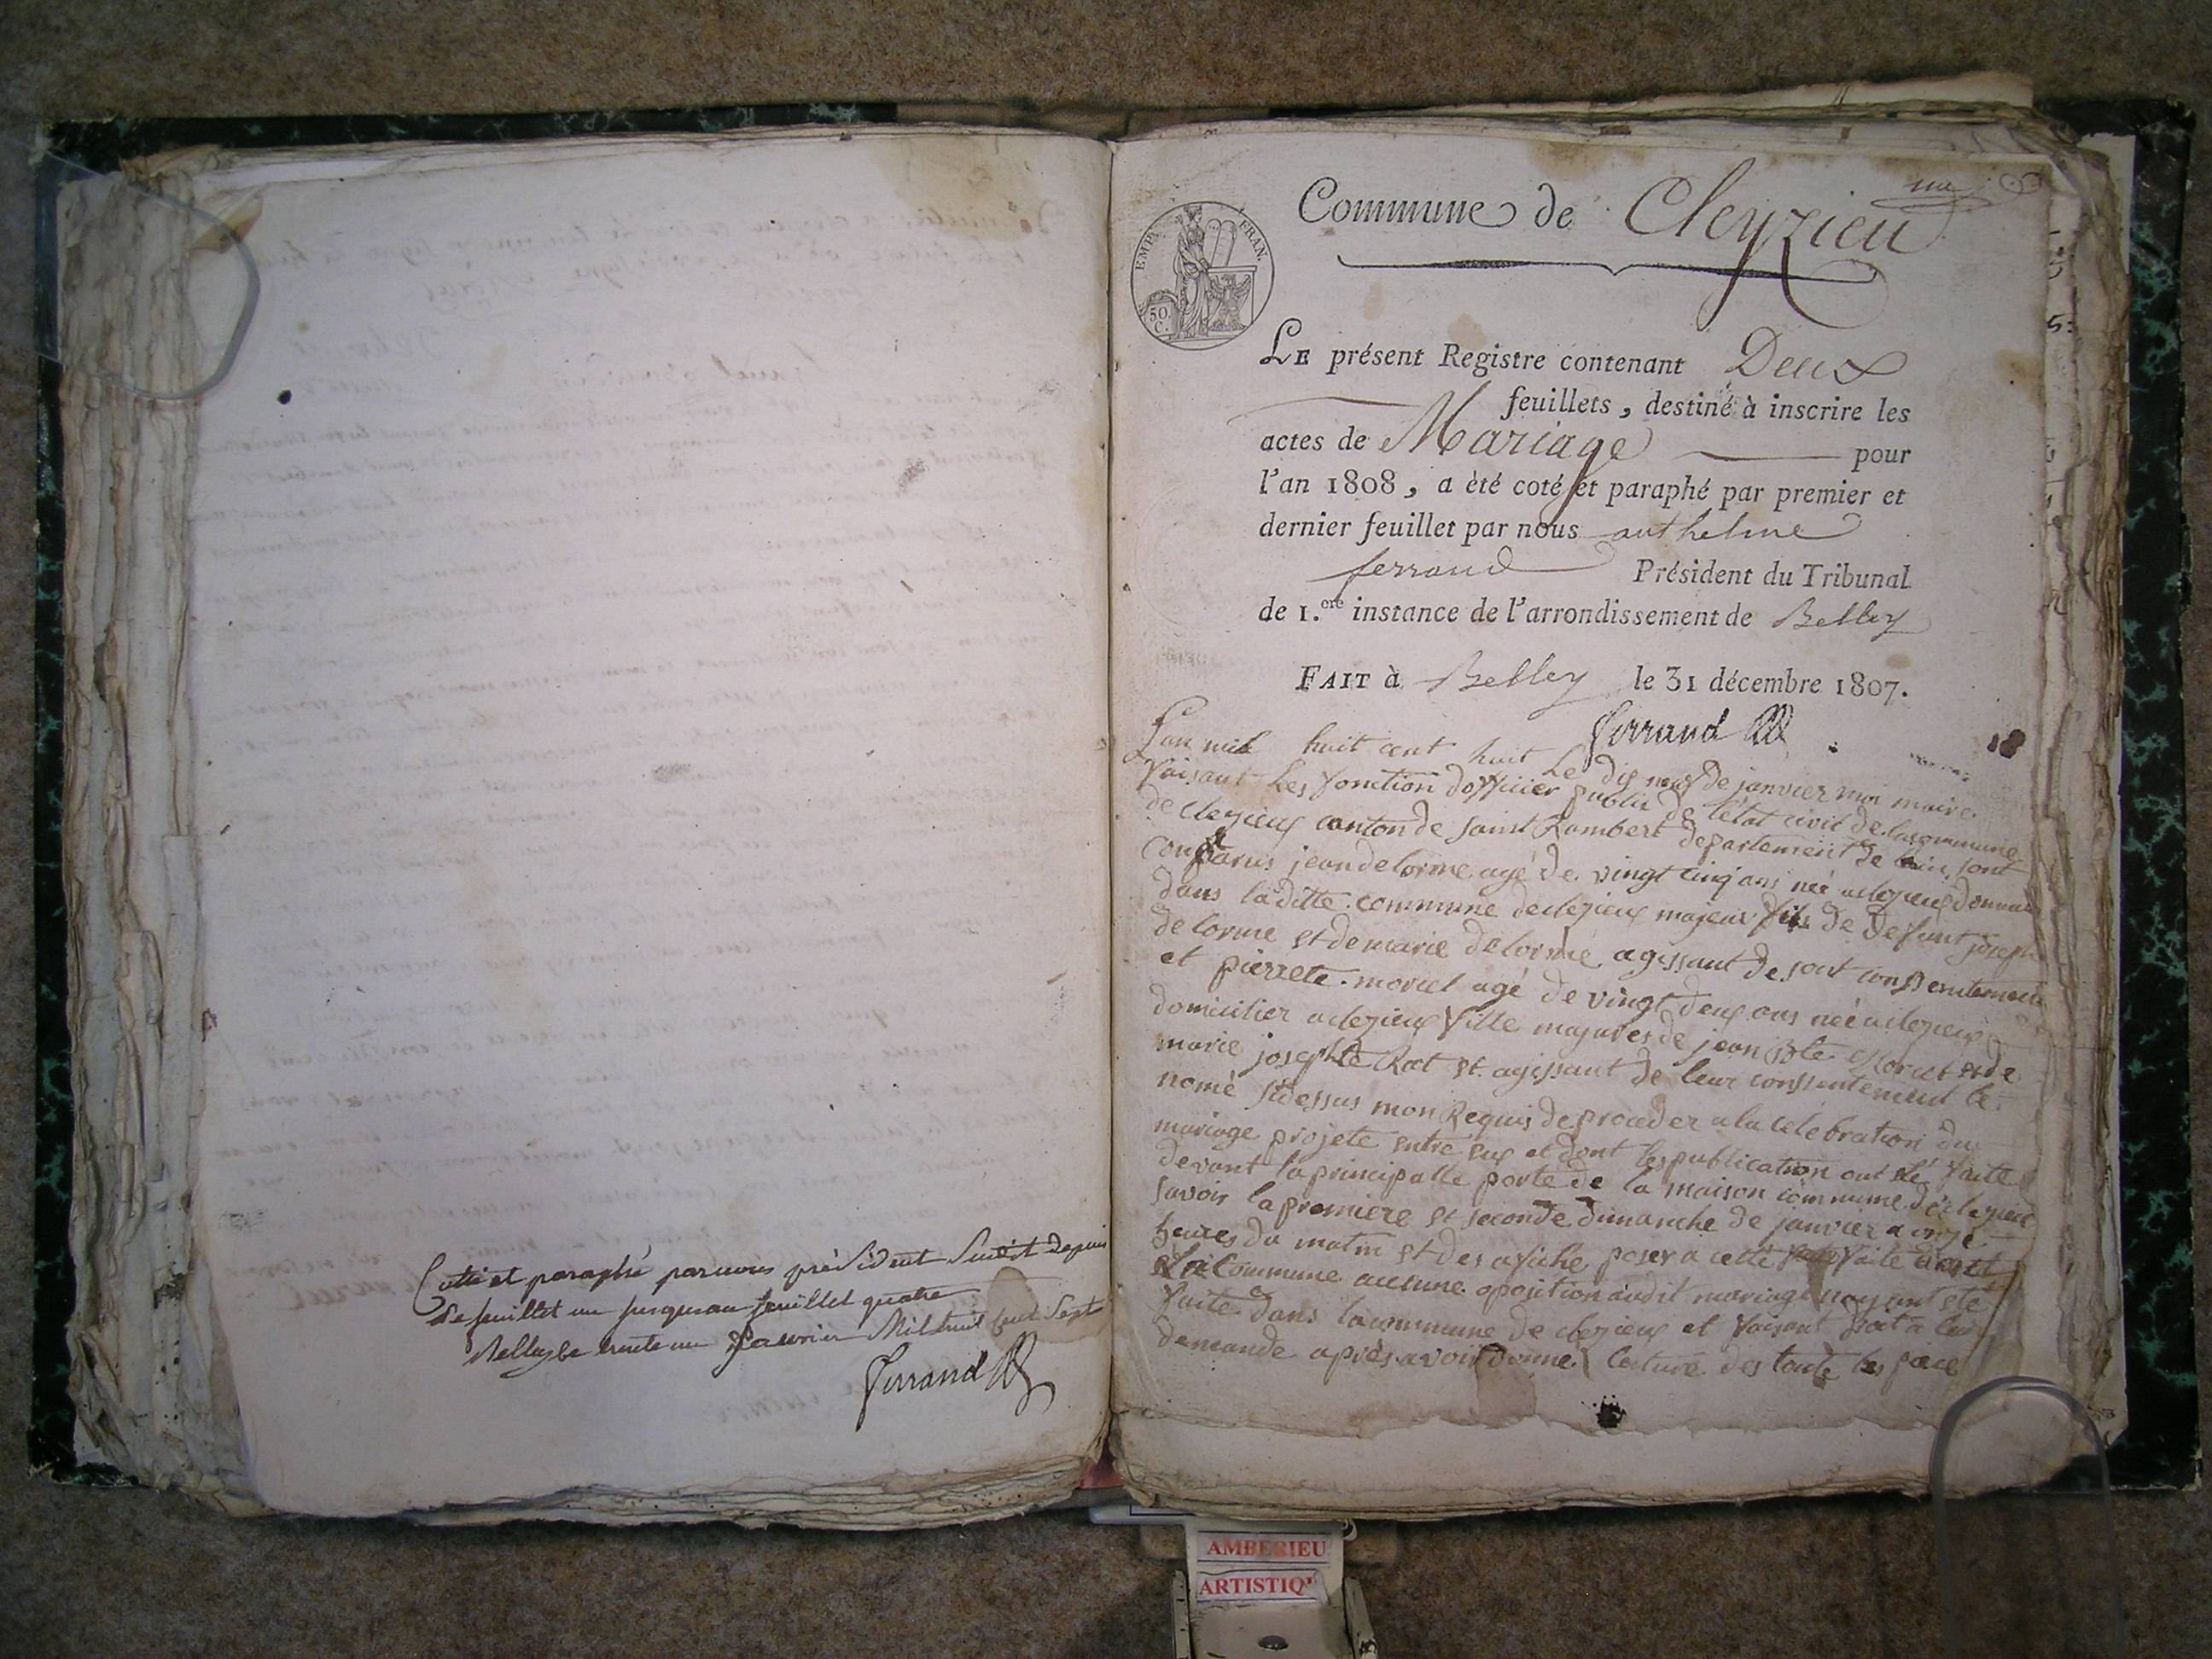 Cotté et paraphé par nous président Susdit depuis
le feuillet un jusqu'au feuillet quatre
Belley le trente un janvier Mil huit cent Sept
Ferrand
EMP. FRAN.
50.
C.
un
Commune de Cleyzieu
LE présent Registre contenant Deux
feuillets, destiné à inscrire les
actes de Mariage pour
l'an 1808, a èté coté et paraphé par premier et
dernier feuillet par nous anthelme
ferrand Président du Tribunal
de 1.ere instance de l'arrondissement de Belley
FAIT à Belley le 31 décembre 1807.
Ferrand
Lan mil huit cent huit Le dix neuf de janvier moi maire
faisant Les fonction dofficier public de l'état civil de la commune
de clezieux canton de saint Rambert departement de lain, sont
comparus jean delorme agé de vingt cinq ans née a clezieux
dans la ditte commune de clezieux majeur fils de defunt joseph
delorme et de marie delorme agissant de sont conssentement
et pierrete morel agé de vingt deux ans née a clezieux
domicilier a clezieux fille majure de jean Bte Morel et de
marie josephte Rat et agissant de leur conssentement le
nomé sidessus mon Requis de proceder a la celebration du
mariage projete entre eux et dont les publication ont été faite
devant la principalle porte de la maison commune de clezieux
savoir la premiere et seconde dimanche de janvier a onze
heures du matin et des afiche poser a cette faite
commune aucune oposition audit mariage nayant été
faite dans la commune de clezieux et faisant droit a leur
demande après avoir donné lecture des toute les piece
AMBERIEU
ARTISTIQ